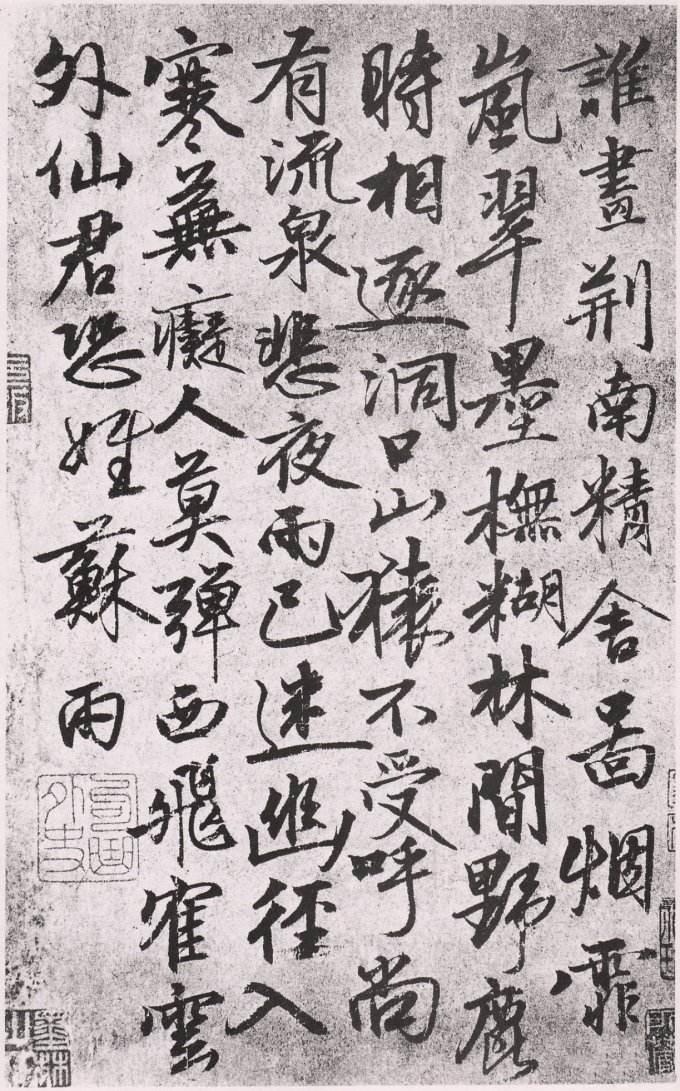 誰畫荆南精舍圖烟霏
嵐翠墨橅糊林間野鹿
時相逐洞口山猿不受呼尚
有流泉悲夜雨已迷幽徑入
寒蕪癡人莫彈西飛隺雲
外仙君恐姓蘇雨